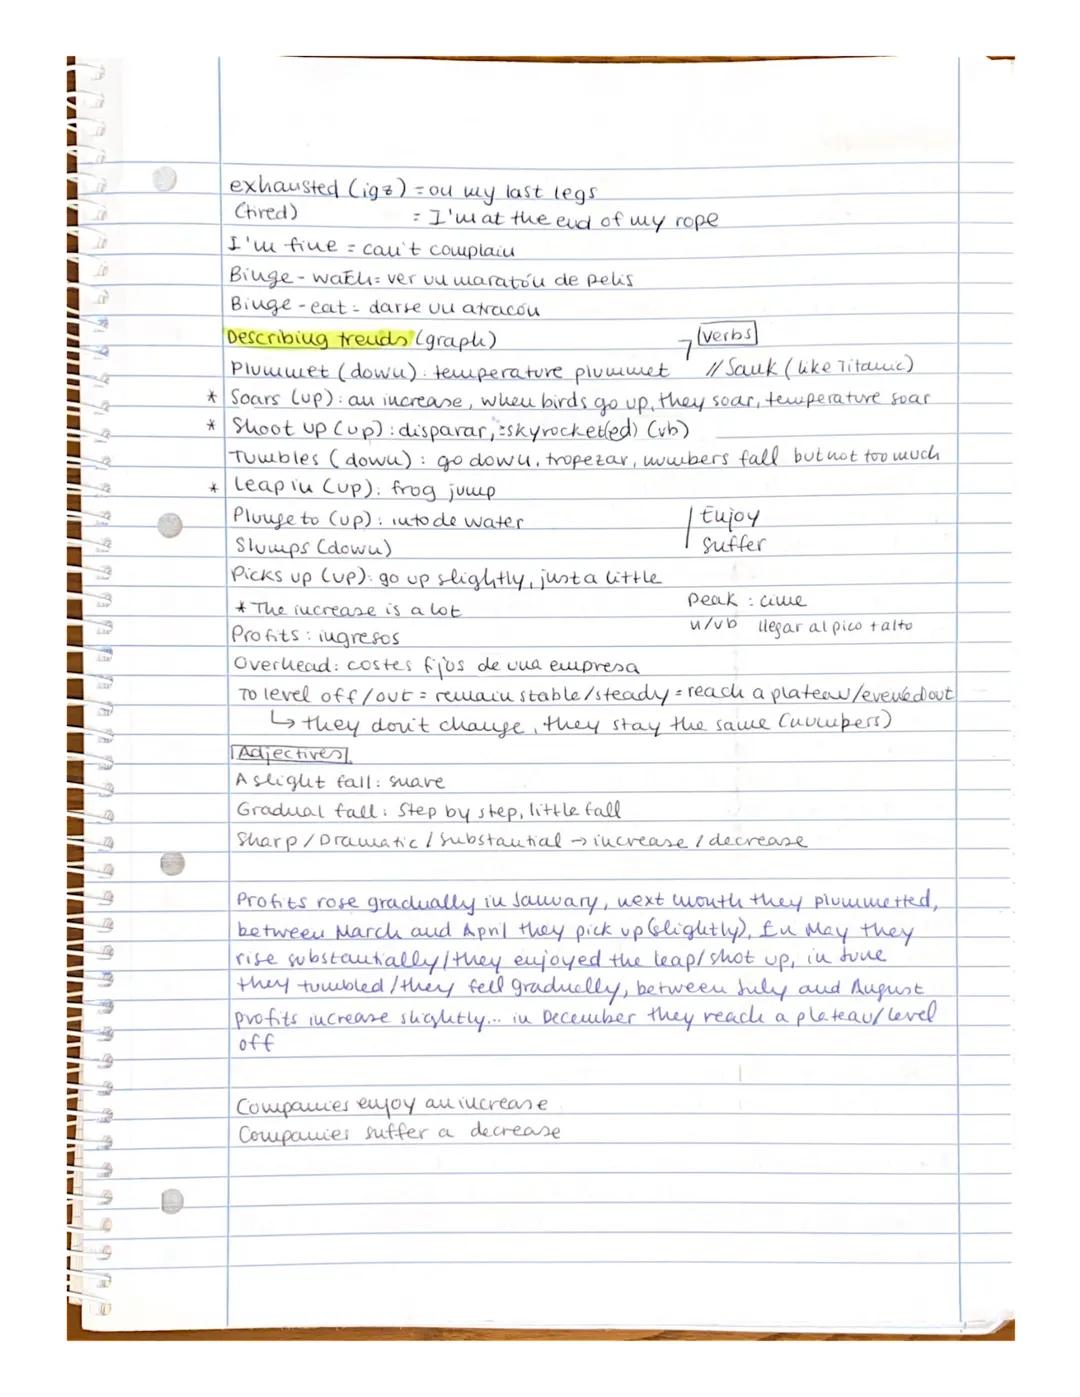 exhausted (igz) = on my last legs
(tired) = I'm at the end of my rope
I'm fine = can't complain
Binge - watch = ver un maratón de pelis
Binge - eat = darse un atracón
Describing trends (graph)
verbs
Plummet (down): temperature plummet // Sank (like Titanic)
* Soars (up): an increase, when birds go up, they soar, temperature soar
* Shoot up (up): disparar, = skyrocket(ed) (vb)
Tumbles (down): go down, tropezar, numbers fall but not too much
* Leap in (up): frog jump
Plunge to (up): into de water
Enjoy
Slumps (down)
Suffer
Picks up (up): go up slightly, just a little
* The increase is a lot
Peak : cime
Profits : ingresos
n/vb llegar al pico + alto
Overhead: costes fijos de una empresa
To level off/out = remain stable/steady = reach a plateau/evened out
↳ they don't change, they stay the same (numbers)
Adjectives
A slight fall: suave
Gradual fall: Step by step, little fall
Sharp / Dramatic / Substantial → increase / decrease
Profits rose gradually in January, next month they plummetted,
between March and April they pick up (slightly), En May they
rise substantially / they enjoyed the leap/ shot up, in June
they tumbled / they fell gradually, between July and August
profits increase slightly... in December they reach a plateau/ level
off
Companies enjoy an increase
Companies suffer a decrease